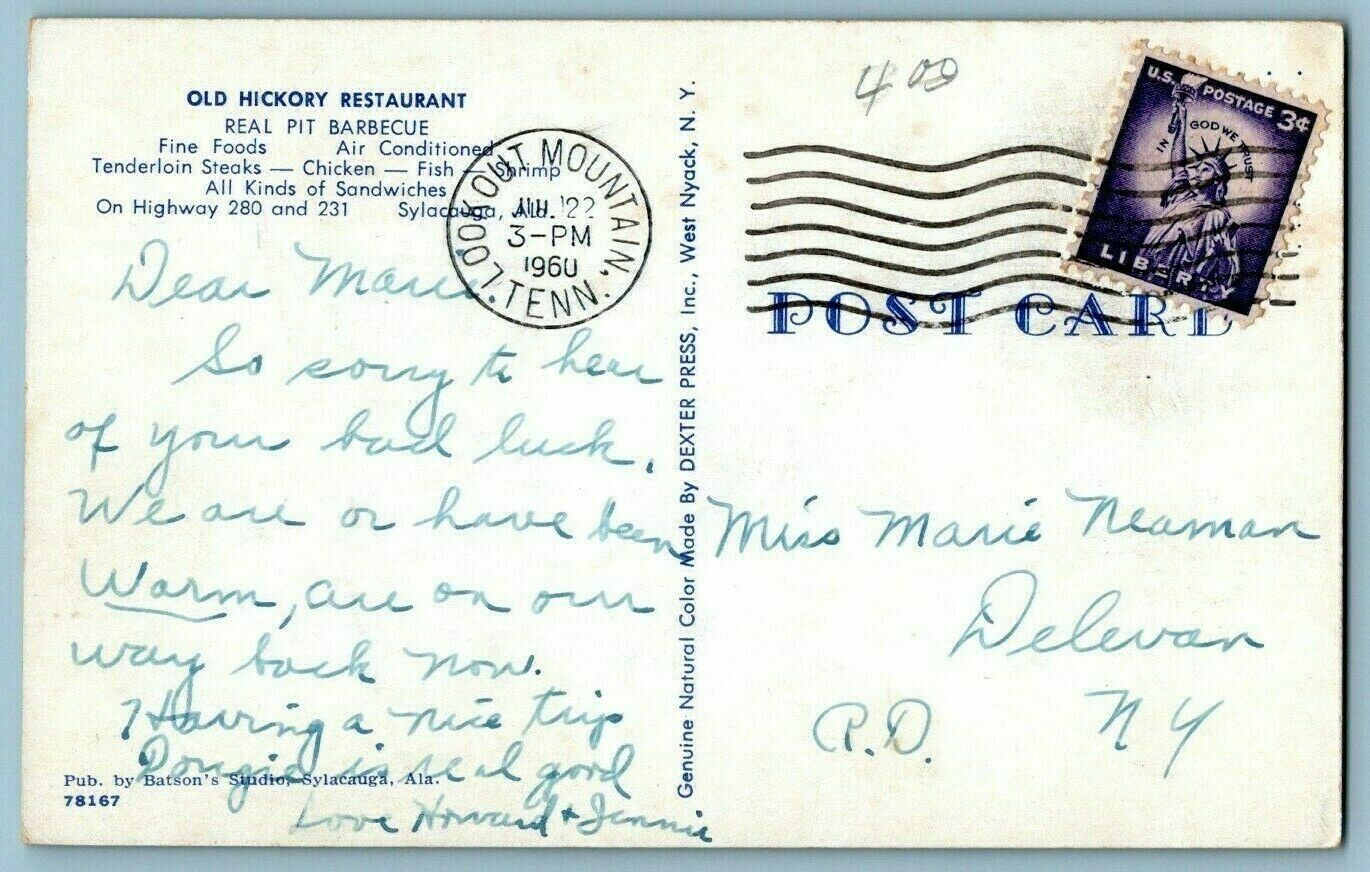 OLD HICKORY RESTAURANT
REAL PIT BARBECUE
Fine Foods Air Conditioned
Tenderloin Steaks — Chicken — Fish — Shrimp
All Kinds of Sandwiches
On Highway 280 and 231 Sylacauga, Ala.
LOOKOUT MOUNTAIN, TENN.
JUL 22
3-PM
1960
Dear Marie.
So sorry to hear
of your bad luck.
We are or have been
Warm, are on our
way back now.
Having a nice trip
Dougie is real good
Love Howard + Jennie
Pub. by Batson's Studio, Sylacauga, Ala.
78167
Genuine Natural Color Made By DEXTER PRESS, Inc., West Nyack, N. Y.
4 00
U.S. POSTAGE 3¢
IN GOD WE TRUST
LIBERTY
POST CARD
Miss Marie Neaman
Delevan
R.D. NY